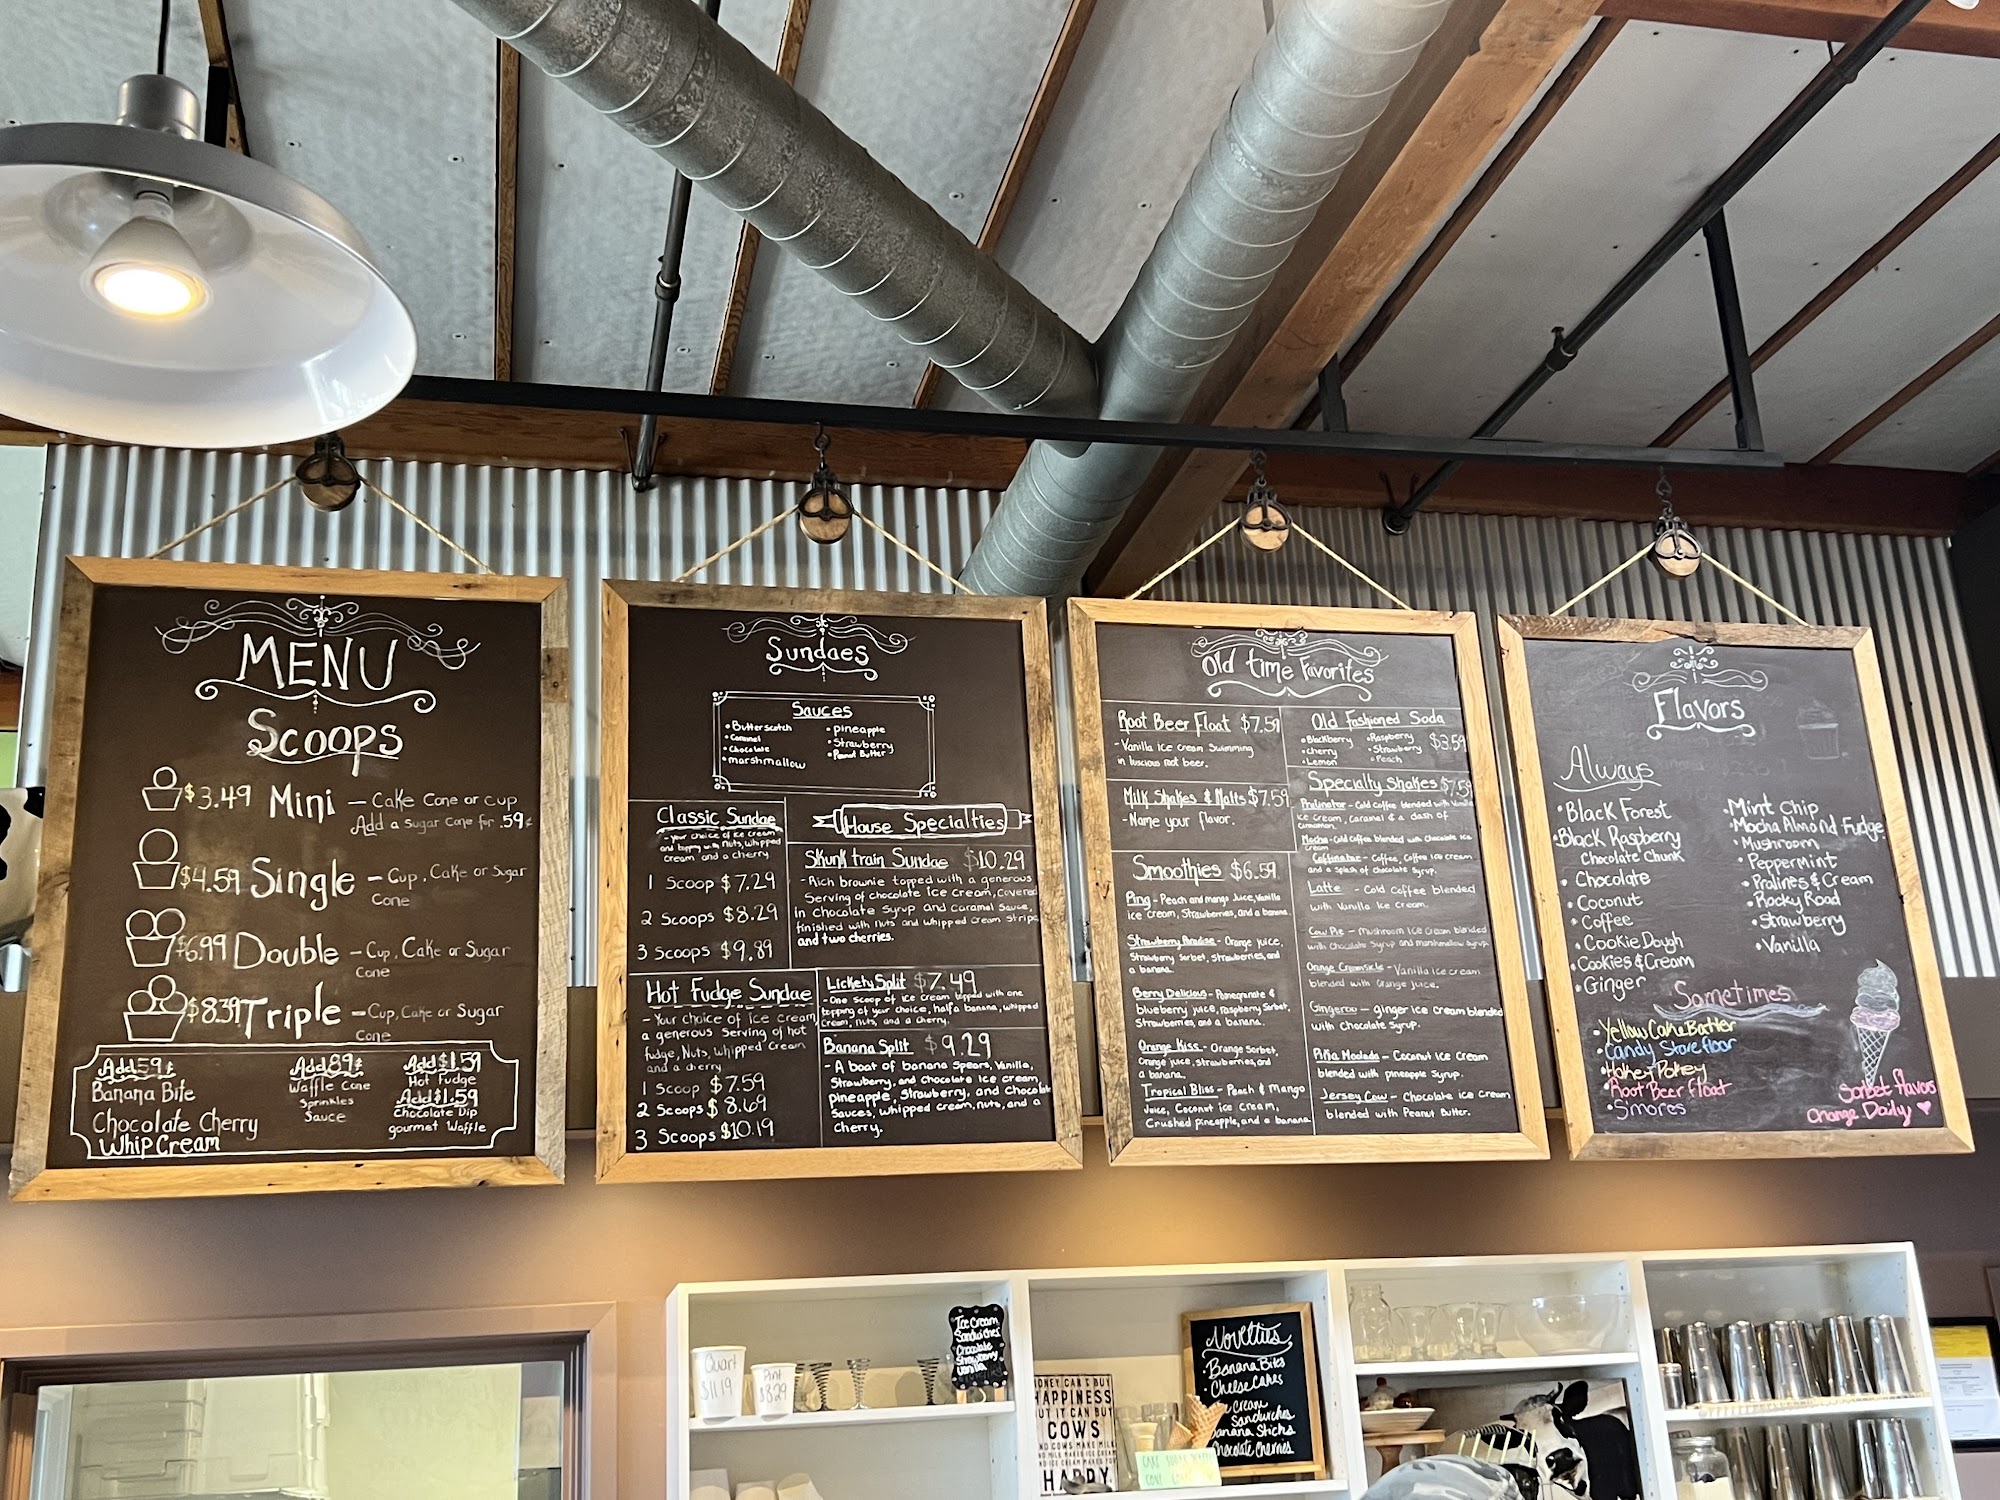 MENU
Scoops
$3.49 Mini - Cake Cone or cup
Add a sugar cone for .59¢
$4.59 Single - Cup, Cake or Sugar
Cone
$6.99 Double - Cup, Cake or Sugar
Cone
$8.39 Triple - Cup, Cake or Sugar
Cone
Add .59¢
Banana Bite
Chocolate Cherry
Whip Cream
Add .89¢
Waffle Cone
Sprinkles
Sauce
Add $1.59
Hot Fudge
Add $1.59
Chocolate Dip
gourmet Waffle
Sundaes
Sauces
• Butterscotch
• Caramel
• Chocolate
• marshmallow
• pineapple
• Strawberry
• Peanut Butter
Classic Sundae
- your choice of ice cream
and topping with nuts, whipped
cream and a cherry
1 Scoop $7.29
2 Scoops $8.29
3 Scoops $9.89
Hot Fudge Sundae
- Your choice of ice cream
a generous serving of hot
fudge, Nuts, whipped cream
and a cherry
1 Scoop $7.59
2 Scoops $8.69
3 Scoops $10.19
House Specialties
Skunk train Sundae $10.29
- Rich brownie topped with a generous
Serving of chocolate ice cream, covered
in chocolate syrup and caramel sauce,
finished with nuts and whipped cream stripe
and two cherries.
Lickety Split $7.49
- One scoop of ice cream topped with one
topping of your choice, half a banana, whipped
cream, nuts, and a cherry.
Banana Split $9.29
- A boat of banana spears, Vanilla,
Strawberry, and chocolate ice cream,
pineapple, Strawberry, and chocolate
sauces, whipped cream, nuts, and a
cherry.
Old time Favorites
Root Beer Float $7.59
- Vanilla ice cream swimming
in luscious root beer.
Milk Shakes & Malts $7.59
- Name your flavor.
Smoothies $6.59
Ping - Peach and mango Juice, Vanilla
ice cream, Strawberries, and a banana.
Strawberry Paradise - Orange juice,
Strawberry Sorbet, strawberries, and
a banana.
Berry Delicious - Pomegranate &
blueberry juice, raspberry Sorbet,
Strawberries, and a banana.
Orange Kiss - Orange Sorbet,
Orange juice, strawberries, and
a banana.
Tropical Bliss - Peach & Mango
Juice, Coconut ice cream,
Crushed pineapple, and a banana
Old Fashioned Soda
$3.59
• Blackberry
• Cherry
• Lemon
• Raspberry
• Strawberry
• Peach
Specialty Shakes $7.59
Pralinator - Cold Coffee blended with Vanilla
ice cream, Caramel & a dash of
cinnamon.
Mocha - Cold Coffee blended with Chocolate ice
cream
Caffinator - Coffee, Coffee ice cream
and a splash of chocolate syrup.
Latte - Cold Coffee blended
with Vanilla Ice Cream.
Cow Pie - Mushroom Ice Cream blended
with chocolate Syrup and marshmallow syrup.
Orange Creamsicle - Vanilla ice cream
blended with Orange Juice.
Gingeroo - ginger ice cream blended
with chocolate Syrup.
Piña Moolada - Coconut Ice Cream
blended with pineapple Syrup.
Jersey Cow - Chocolate ice cream
blended with Peanut Butter.
Flavors
Always
• Black Forest
• Black Raspberry
Chocolate Chunk
• Chocolate
• Coconut
• Coffee
• Cookie Dough
• Cookies & Cream
• Ginger
• Mint Chip
• Mocha Almond Fudge
• Mushroom
• Peppermint
• Pralines & Cream
• Rocky Road
• Strawberry
• Vanilla
Sometimes
• Yellow Cake Batter
• Candy Store floor
• Hokey Pokey
• Root Beer Float
• S'mores
Sorbet flavors
Change Daily
Quart
$11.19
Pint
$8.29
Ice Cream
Sandwiches
Chocolate
Strawberry
Vanilla
Novelties
• Banana Bites
• Cheesecakes
Ice Cream
Sandwiches
Banana Sticks
Chocolate Cherries
MONEY CAN'T BUY
HAPPINESS
BUT IT CAN BUY
COWS
AND COWS MAKE MILK
AND MILK MAKES ICE CREAM
AND ICE CREAM MAKES YOU
HAPPY